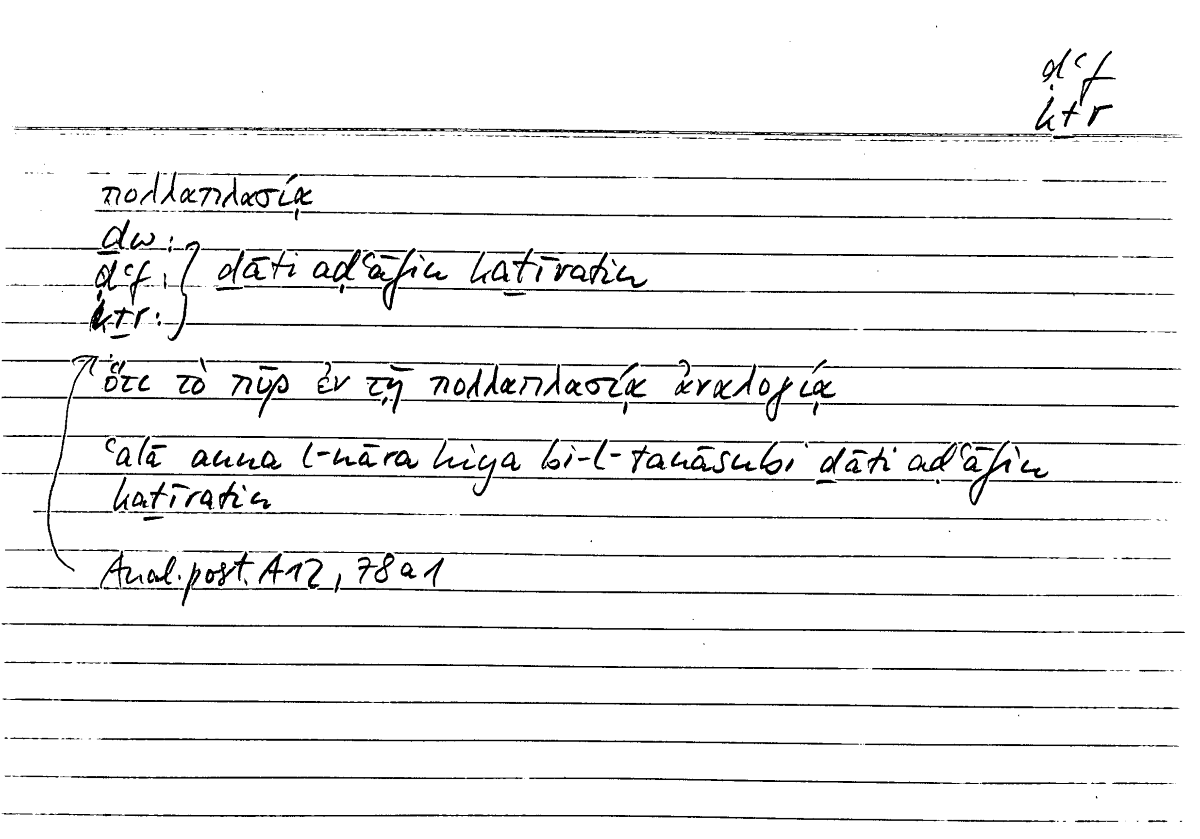 ḍʿf
kṯr
πολλαπλασίᾳ
ḏw:
ḍʿf:
kṯr:
ḏāti aḍʿāfin kaṯīratin
ὅτι τὸ πῦρ ἐν τῇ πολλαπλασίᾳ ἀναλογίᾳ
ʿalā anna l-nāra hiya bi-l-tanāsubi ḏāti aḍʿāfin
kaṯīratin
Anal. post. A12, 78a1